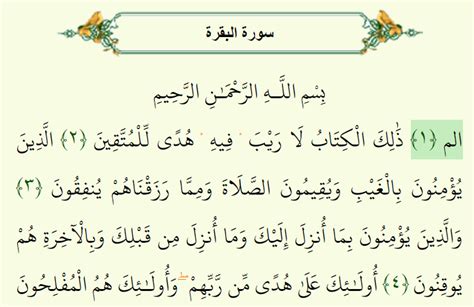 سورة البقرة
بِسْمِ اللَّـهِ الرَّحْمَـٰنِ الرَّحِيمِ
الم ﴿١﴾ ذَٰلِكَ الْكِتَابُ لَا رَيْبَ ۛ فِيهِ ۛ هُدًى لِّلْمُتَّقِينَ ﴿٢﴾ الَّذِينَ
يُؤْمِنُونَ بِالْغَيْبِ وَيُقِيمُونَ الصَّلَاةَ وَمِمَّا رَزَقْنَاهُمْ يُنفِقُونَ ﴿٣﴾
وَالَّذِينَ يُؤْمِنُونَ بِمَا أُنزِلَ إِلَيْكَ وَمَا أُنزِلَ مِن قَبْلِكَ وَبِالْآخِرَةِ هُمْ
يُوقِنُونَ ﴿٤﴾ أُولَـٰئِكَ عَلَىٰ هُدًى مِّن رَّبِّهِمْ ۖ وَأُولَـٰئِكَ هُمُ الْمُفْلِحُونَ